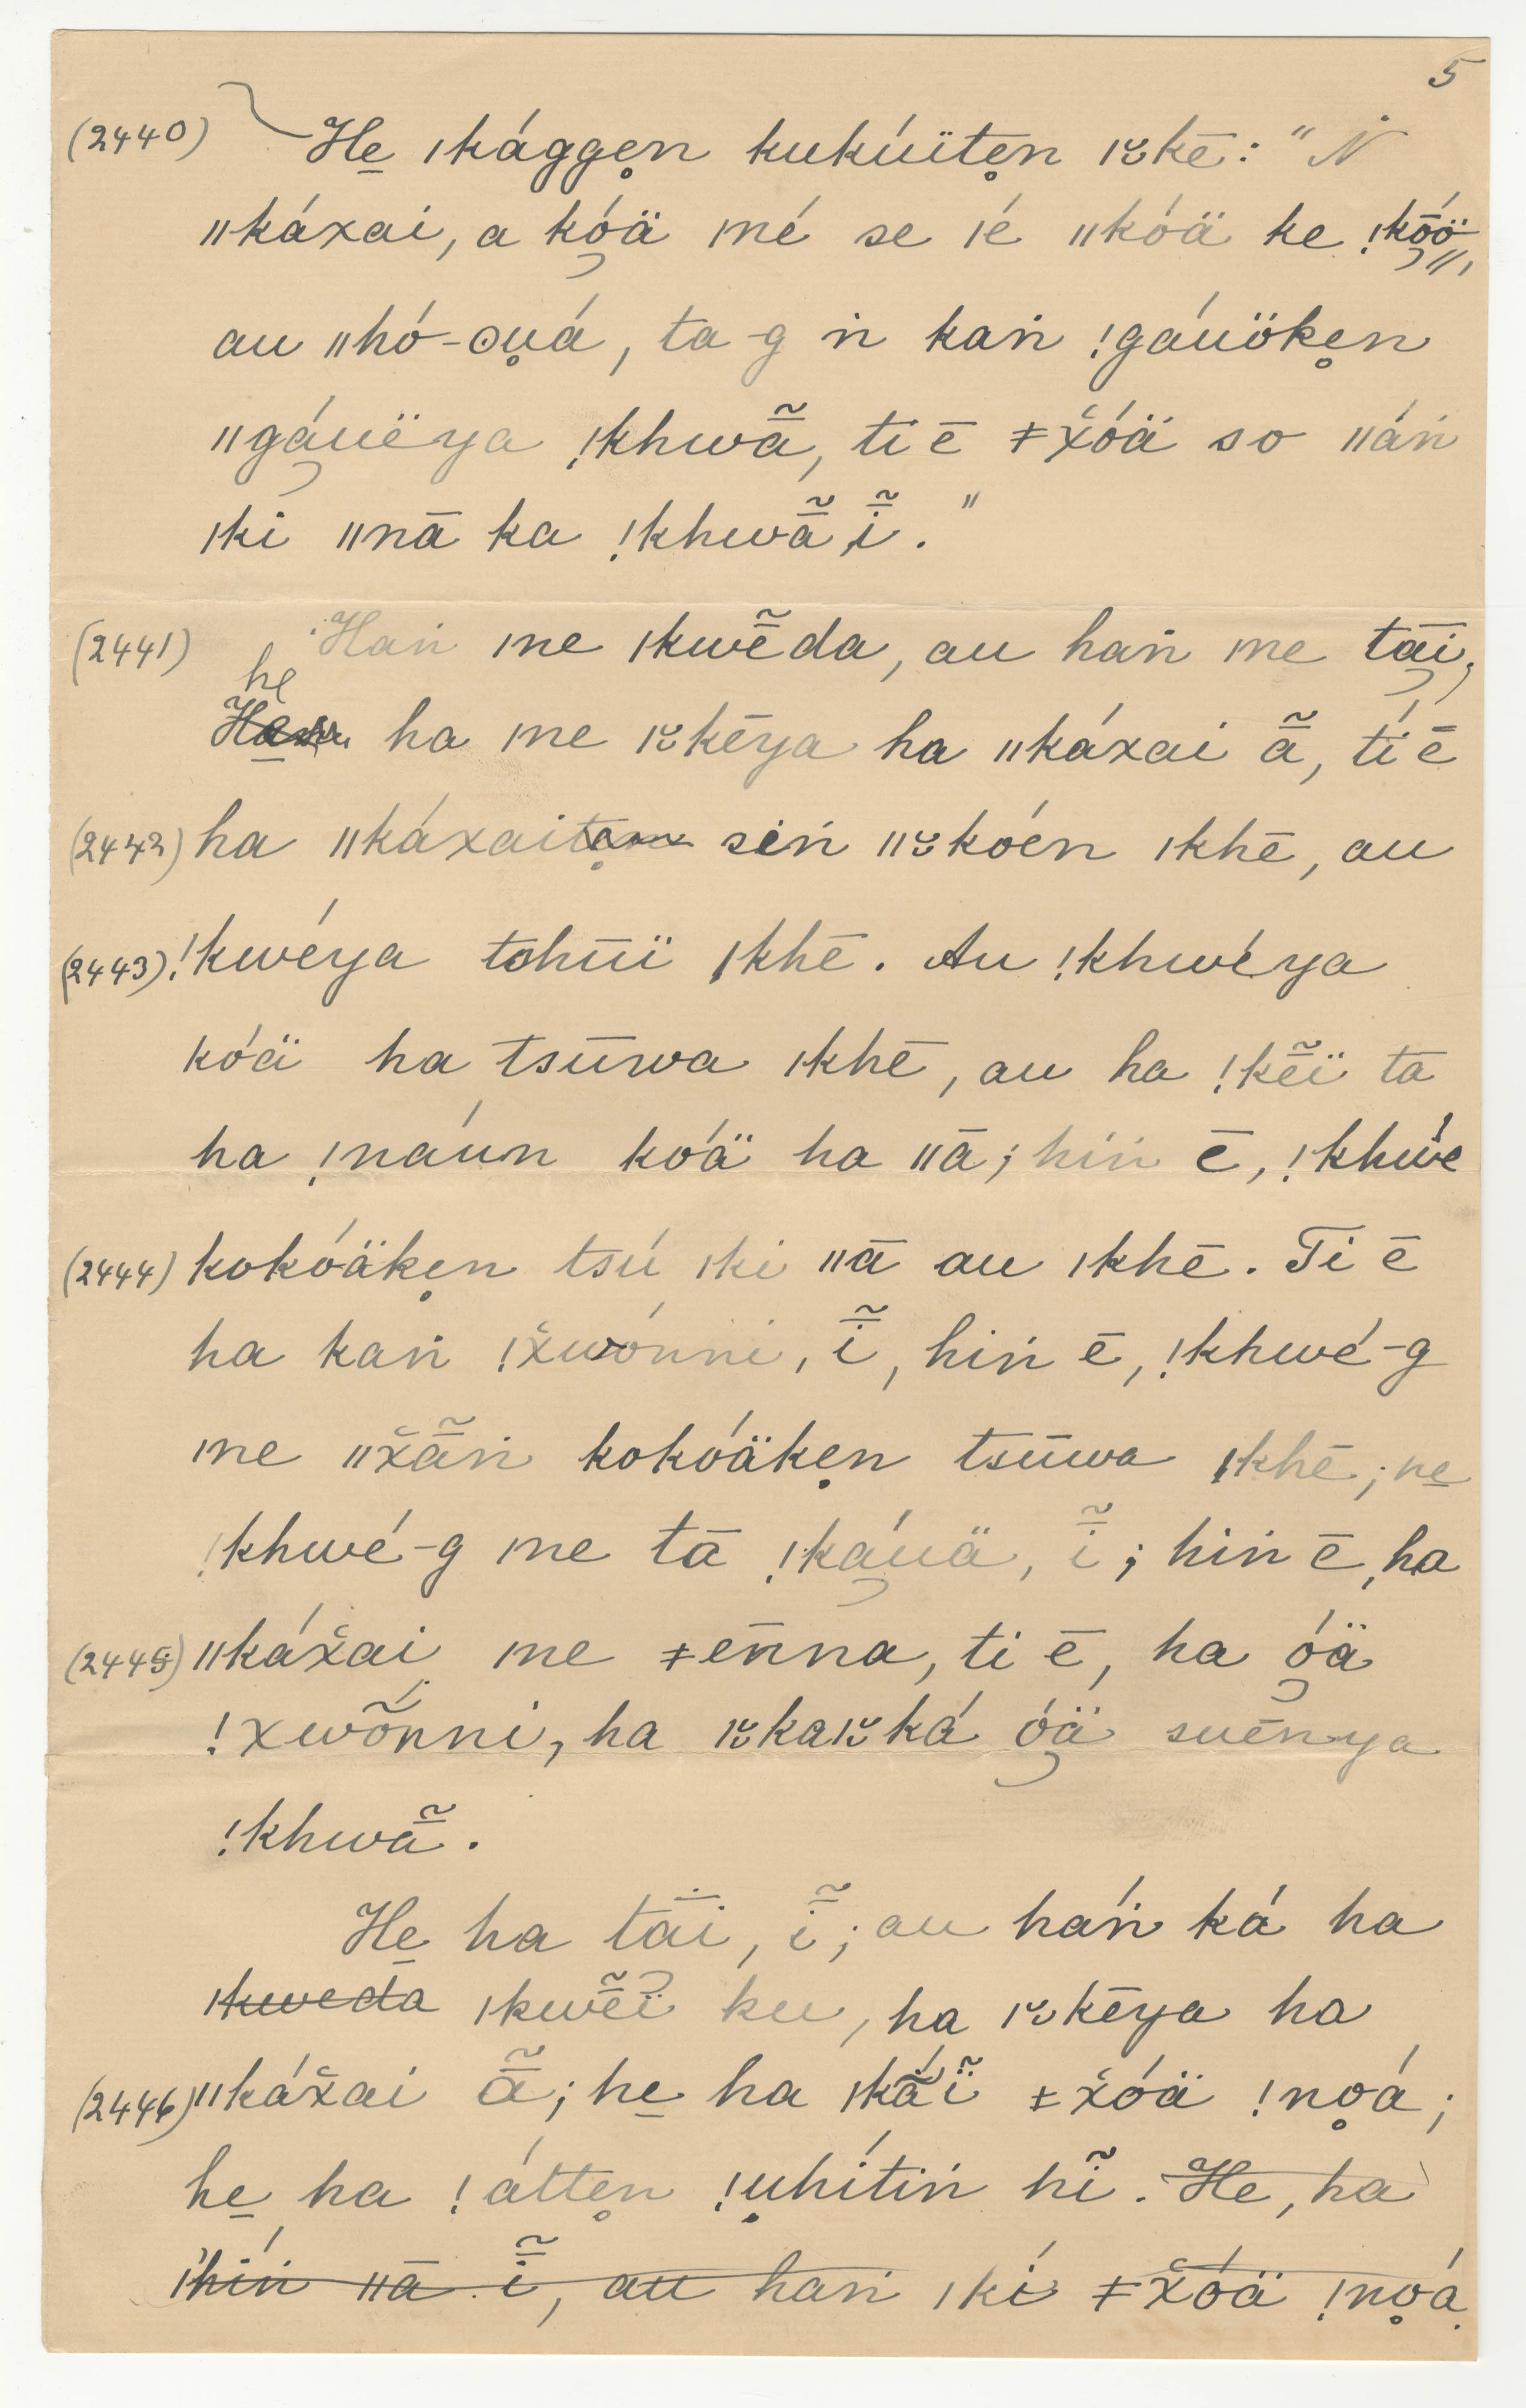 5
(2440) He̱ ǀkágge̥n kukúïte̥n ǀ꞉kē: "Ṅ
ǁkáxai, a kóä ǀné se ǀé ǁkóä ke ǃkōö,
au ǁhó-ʘu̥á, ta-g ṅ kaṅ ǃgáuöke̥n
ǁgáuëya ǃkhwã̄, ti ē ǂx̆óä so ǁáṅ
ǀki ǁnā ka ǃkhwã̄ ĩ̄."
(2441) Haṅ ǀne ǀkwẽ̄da, au haṅ ǀne tāī,
he ha ǀne ǀ꞉kēya ha ǁkáxai ã̄, ti ē
(2442) ha ǁkáxai siṅ ǁ꞉kóen ǀkhē, au
(2443) ǃkwéya tohūï ǀkhē. Au ǃkhwéya
kóä ha tsūwa ǀkhē, au ha ǃkẽ̄ï tā
ha ǃnáun kóä ha ǁā; hiṅ ē, ǃkhwé
(2444) kokóäke̥n tsú ǀki ǁā au ǀkhē. Ti ē
ha kaṅ ǃx̆wónni, ĩ̄, hiṅ ē, ǃkhwé-g
ǀne ǁx̆ã̄ṅ kokóäke̥n tsūwa ǀkhē; he̱
ǃkhwé-g ǀne tā ǃkáuä, ĩ̄; hiṅ ē, ha
(2445) ǁkáx̆ai ǀne ǂēnna, ti ē, ha óä
ǃxwȭnni, ha ǀ꞉kaǀ꞉ká óä suēnya
ǃkhwã̄.
He̱ ha tāī, ĩ̄; au háṅ ká ha
ǀkweda ǀkwẽ̄ï ku, ha ǀ꞉kēya ha
(2446) ǁkáx̆ai ã̄; he̱ ha ǀkã́ï ǂx̆óä ǃno̥á;
he̱ ha ǃátte̥n ǃu̥hítiṅ hĩ. He, ha
ǀhíṅ ǁā ĩ̄, au haṅ ǀkí ǂx̆óä ǃno̥á.